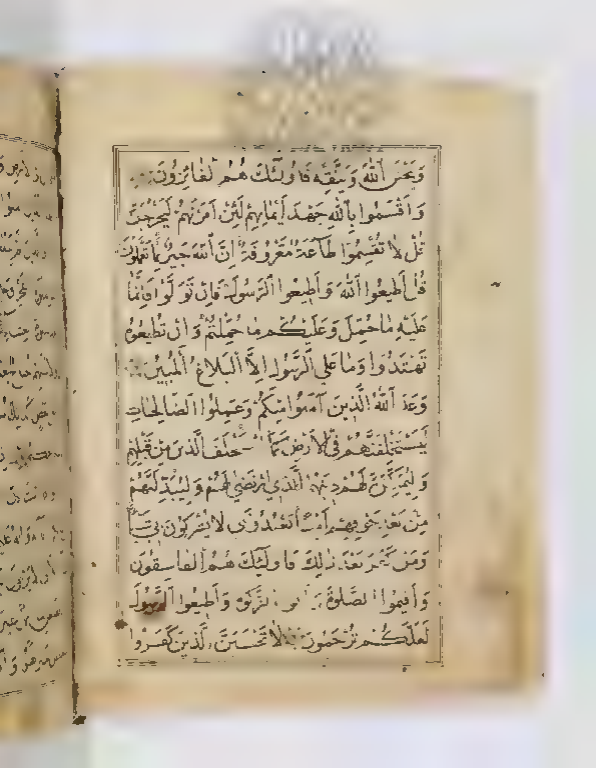 وَيَخْشَ اللّٰهَ وَيَتَّقْهِ فَاُولٰئِكَ هُمُ الْفَائِزُونَ
وَاَقْسَمُوا بِاللّٰهِ جَهْدَ اَيْمَانِهِمْ لَئِنْ اَمَرْتَهُمْ لَيَخْرُجُنَّ
قُلْ لَا تُقْسِمُوا طَاعَةٌ مَعْرُوفَةٌ اِنَّ اللّٰهَ خَبِيرٌ بِمَا تَعْمَلُونَ
قُلْ اَطِيعُوا اللّٰهَ وَاَطِيعُوا الرَّسُولَ فَاِنْ تَوَلَّوْا فَاِنَّمَا
عَلَيْهِ مَا حُمِّلَ وَعَلَيْكُمْ مَا حُمِّلْتُمْ وَاِنْ تُطِيعُوهُ
تَهْتَدُوا وَمَا عَلَى الرَّسُولِ اِلَّا الْبَلَاغُ الْمُبِينُ
وَعَدَ اللّٰهُ الَّذِينَ اٰمَنُوا مِنْكُمْ وَعَمِلُوا الصَّالِحَاتِ
لَيَسْتَخْلِفَنَّهُمْ فِي الْاَرْضِ كَمَا اسْتَخْلَفَ الَّذِينَ مِنْ قَبْلِهِمْ
وَلَيُمَكِّنَنَّ لَهُمْ دِينَهُمُ الَّذِي ارْتَضٰى لَهُمْ وَلَيُبَدِّلَنَّهُمْ
مِنْ بَعْدِ خَوْفِهِمْ اَمْنًا يَعْبُدُونَنِي لَا يُشْرِكُونَ بِي شَيْئًا
وَمَنْ كَفَرَ بَعْدَ ذٰلِكَ فَاُولٰئِكَ هُمُ الْفَاسِقُونَ
وَاَقِيمُوا الصَّلٰوةَ وَاٰتُوا الزَّكٰوةَ وَاَطِيعُوا الرَّسُولَ
لَعَلَّكُمْ تُرْحَمُونَ لَا تَحْسَبَنَّ الَّذِينَ كَفَرُوا